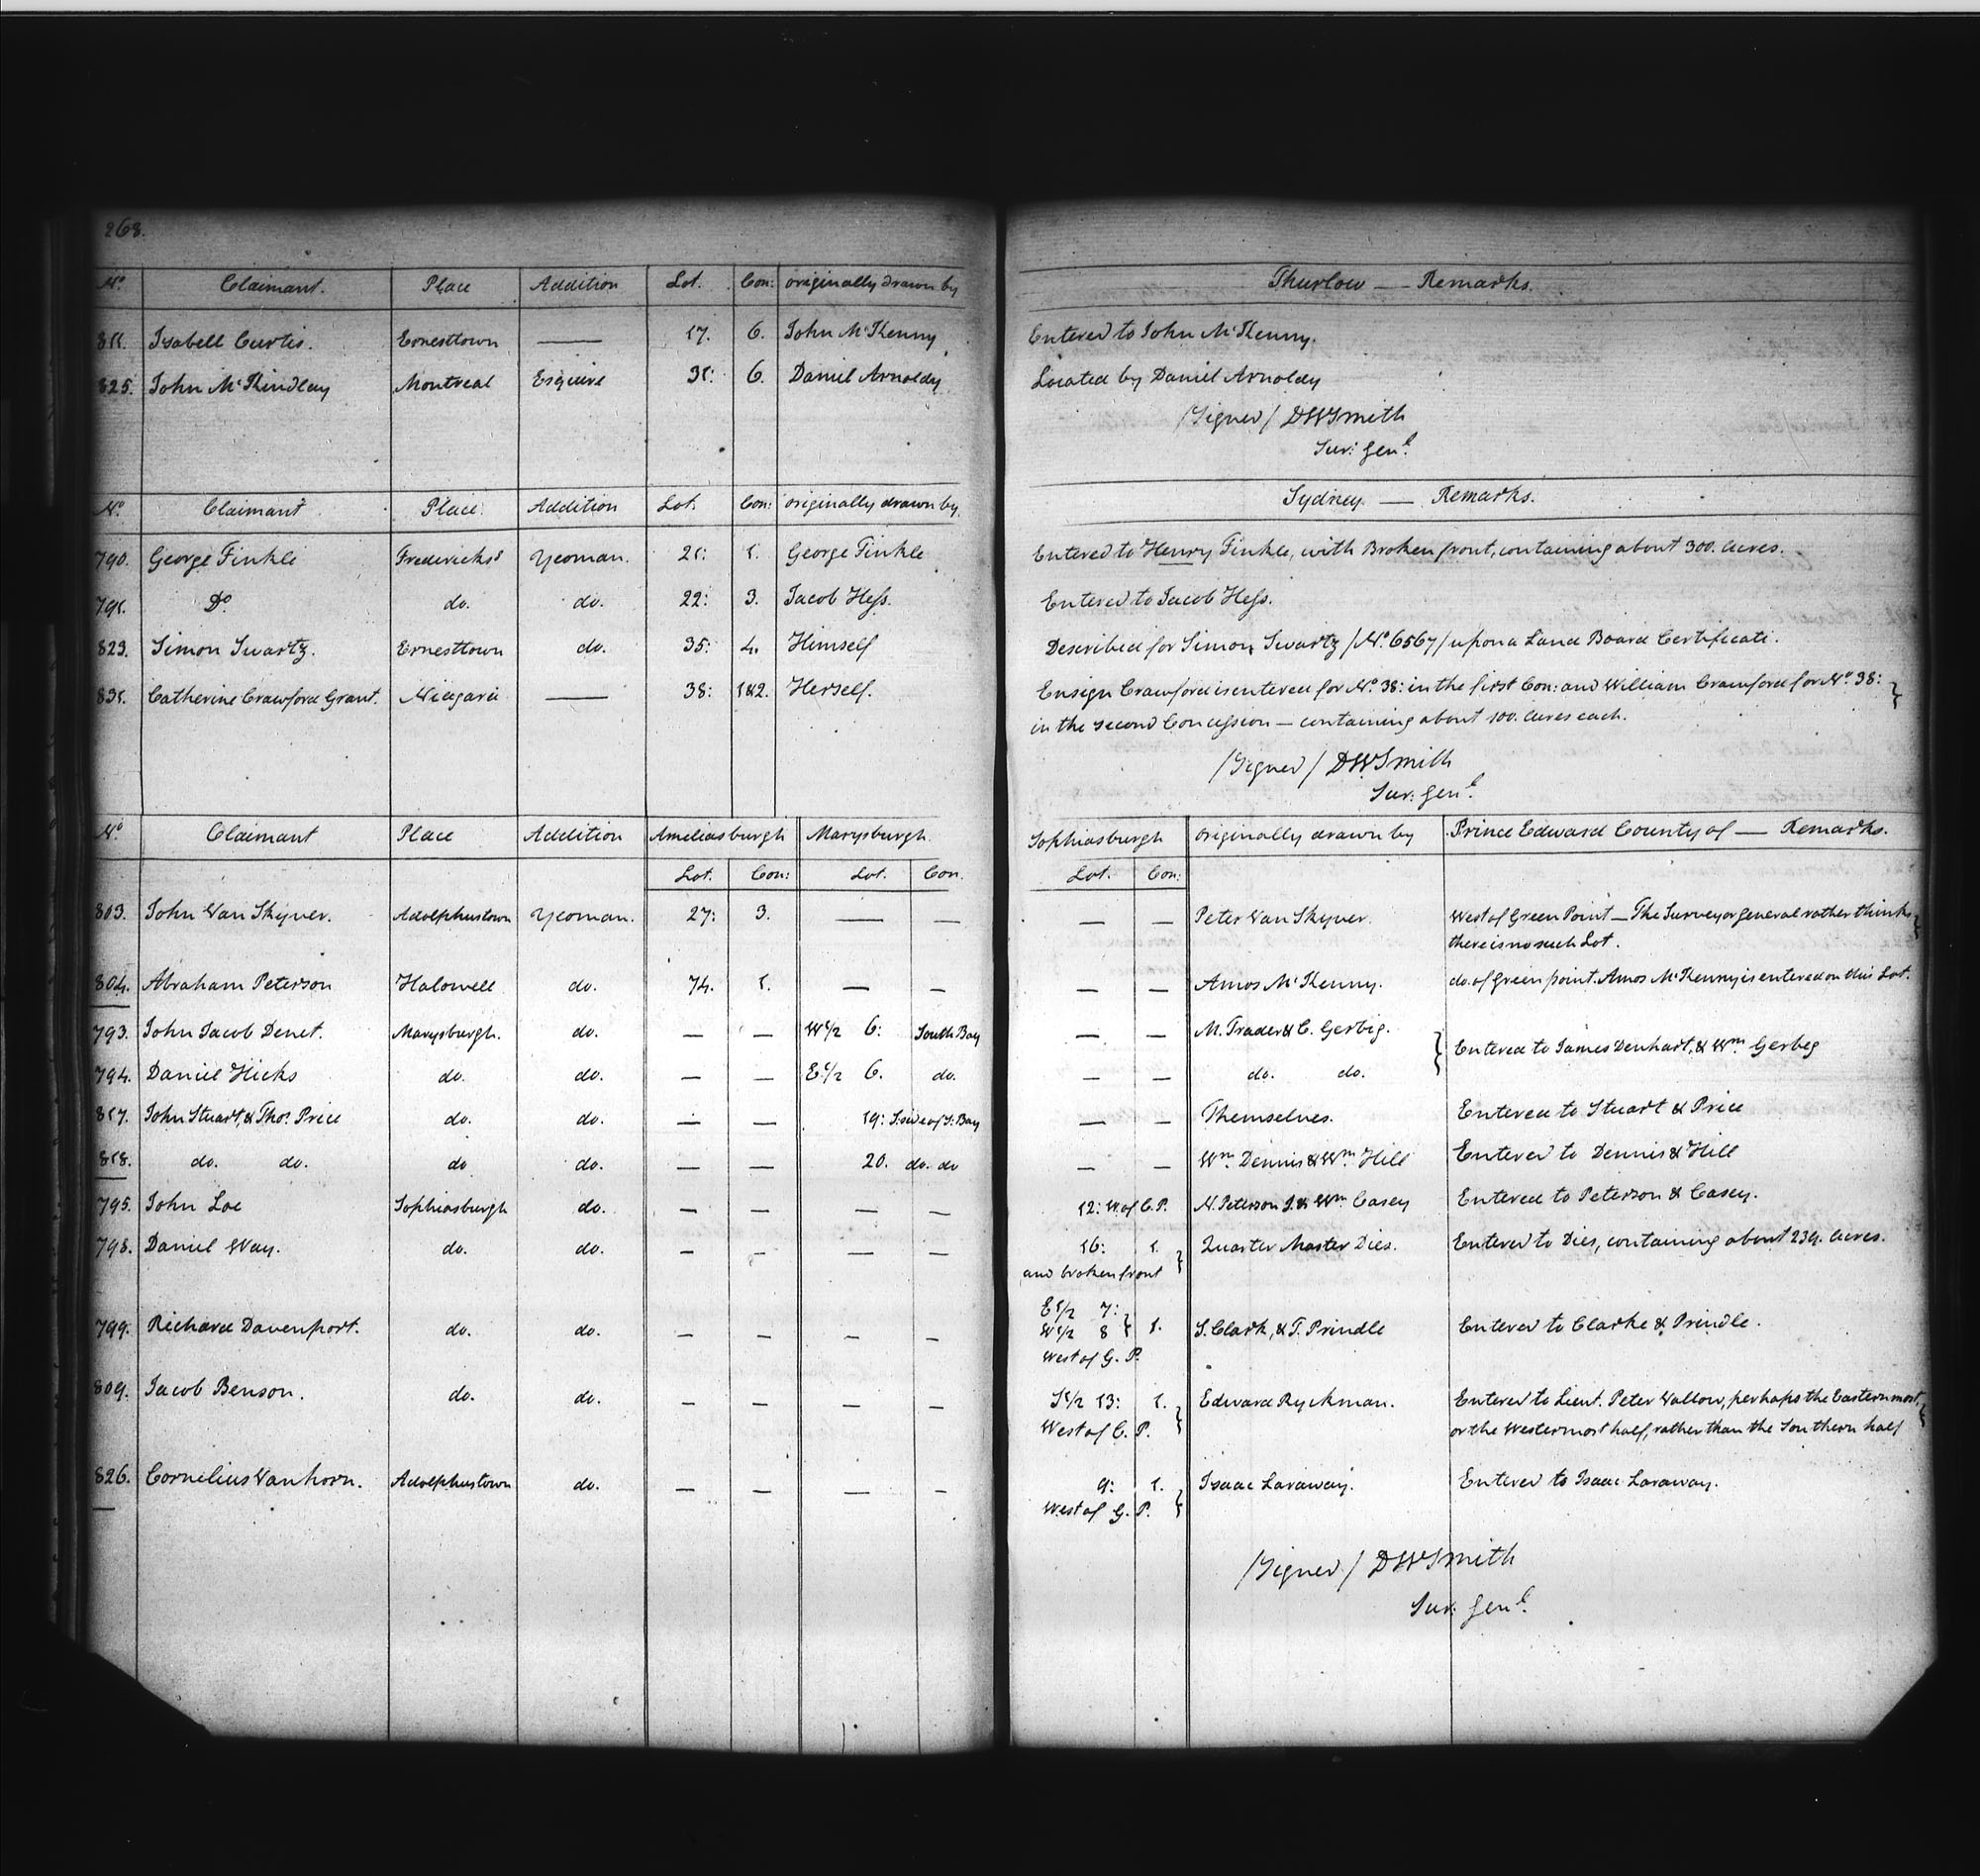 268.
No. Claimant. Place Addition Lot. Con: originally drawn by Thurlow — Remarks.
811. Isabell Curtis. Ernesttown — 17. 6. John McKenny Entered to John McKenny.
825. John McKindlay Montreal Esquire 31: 6. Daniel Arnoldy Located by Daniel Arnoldy
/Signed/ DWSmith
Sur: Genl.
No. Claimant Place Addition Lot. Con: originally drawn by. Sydney — Remarks.
790. George Finkle Fredericks Yeoman. 21: 1. George Finkle Entered to Henry Finkle, with Broken front, containing about 300. acres.
791. Do do. do. 22: 3. Jacob Hess. Entered to Jacob Hess.
823. Simon Swartz. Ernesttown do. 35: 4. Himself Described for Simon Swartz /No. 6567/ upon a Land Board Certificate.
831. Catherine Crawford Grant. Niagara — 38: 1&2. Herself. Ensign Crawford is entered for No. 38: in the first Con: and William Crawford for No. 38: }
in the second Concession — containing about 100. acres each.
/Signed/ DWSmith
Sur: Genl.
No. Claimant Place Addition Ameliasburgh Marysburgh Sophiasburgh originally drawn by Prince Edward County of — Remarks.
Lot. Con: Lot. Con. Lot. Con:
803. John Van Skyver. Adolphustown Yeoman. 27: 3. — — — — Peter Van Skyver. West of Green Point — The Surveyor general rather thinks }
there is no such Lot.
804. Abraham Peterson Halowell do. 74. 1. — — — — Amos McKenny. do. of Green point. Amos McKenny is entered on this Lot.
793. John Jacob Denet. Marysburgh. do. — — W1/2 6: South Bay — — M. Trader & C. Gerbig. } Entered to James Denhart, & Wm. Gerbeg
794. Daniel Hicks do. do. — — E1/2 6. do. — — do. do.
817. John Stuart, & Thos. Price do. do. — — 19: S. side of S: Bay — — Themselves. Entered to Stuart & Price
818. do. do. do do. — — 20. do. do — — Wm. Dennis & Wm. Hill Entered to Dennis & Hill
795. John Loe Sophiasburgh do. — — — — 12: W. of G. P. N. Peterson J. & Wm Casey Entered to Peterson & Casey.
798. Daniel Way. do. do. — — — — 16: 1. } Quarter Master Dies. Entered to Dies, containing about 239. acres.
and broken front
799. Richard Davenport. do. do. — — — — E1/2 7: } W1/2 8 } 1. S. Clark, & T. Prindle Entered to Clarke & Prindle.
West of G. P.
809. Jacob Benson. do. do. — — — — S1/2 13: 1. } Edward Ryckman. Entered to Lieut. Peter Wallow, perhaps the Easternmost, }
West of G. P. or the Westermost half, rather than the Southern half
826. Cornelius Vanhorn. Adolphustown do. — — — — 9: 1. } Isaac Laraway. Entered to Isaac Laraway.
West of G. P.
/Signed/ DWSmith
Sur: Genl.